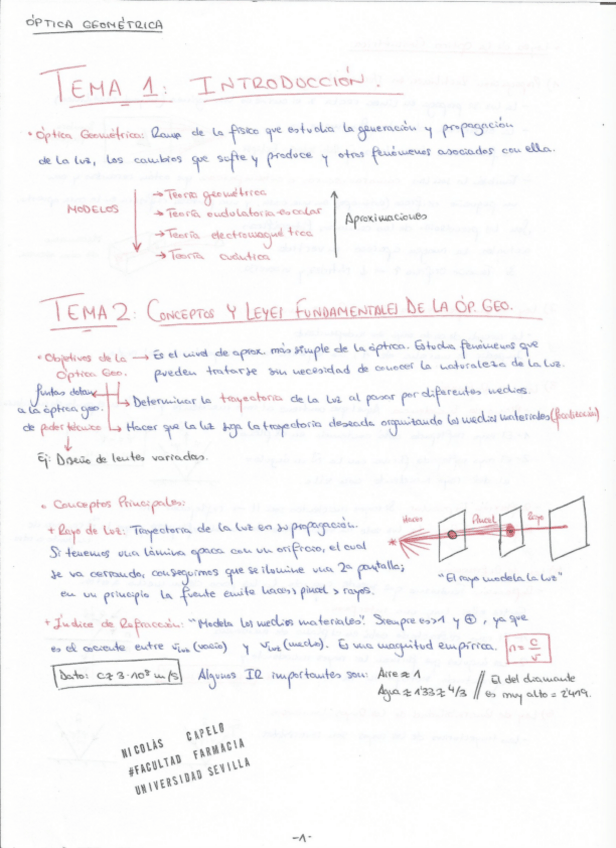 ÓPTICA GEOMÉTRICA
TEMA 1: INTRODUCCIÓN.
• Óptica Geométrica: Rama de la física que estudia la generación y propagación
de la luz, los cambios que sufre y produce y otros fenómenos asociados con ella.
MODELOS
→ Teoría geométrica
→ Teoría ondulatoria escalar
→ Teoría electromagnética
→ Teoría cuántica
Aproximaciones
TEMA 2: CONCEPTOS Y LEYES FUNDAMENTALES DE LA ÓP. GEO.
• Objetivos de la Óptica Geo. → Es el nivel de aprox. más simple de la óptica. Estudia fenómenos que
pueden tratarse sin necesidad de conocer la naturaleza de la luz.
Determinar la trayectoria de la luz al pasar por diferentes medios.
Hacer que la luz siga la trayectoria deseada organizando los medios materiales
Juntas dotan
a la óptica geo.
de poder técnico
Ej: Diseño de lentes variadas.
• Conceptos Principales:
+ Rayo de Luz: Trayectoria de la luz en su propagación.
Si tenemos una lámina opaca con un orificio, el cual
se va cerrando, conseguimos que se ilumine una 2ª pantalla;
en un principio la fuente emite haces > pincel > rayos.
Haces Pincel Rayo
"El rayo modela la luz"
+ Índice de Refracción: "Modela los medios materiales". Siempre es >1 y ⊕, ya que
es el cociente entre v luz (vacío) y v luz (medio). Es una magnitud empírica. n = c/v
Dato: c ≈ 3·10⁸ m/s
Algunos IR importantes son: Aire ≈ 1
Agua ≈ 1'33 ≈ 4/3
// El del diamante
es muy alto = 2'419.
NICOLÁS CAPELO
#FACULTAD FARMACIA
UNIVERSIDAD SEVILLA
-1-